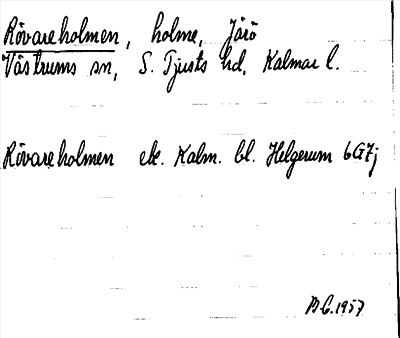 Rövareholmen, holme, Järö
Västrums sn, S. Tjusts hd, Kalmar l.
Rövareholmen ek. Kalm. bl. Helgerum 6G7j
B.G. 1957